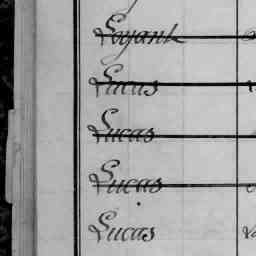 Loyant
Lucas
Lucas
Lucas
Lucas